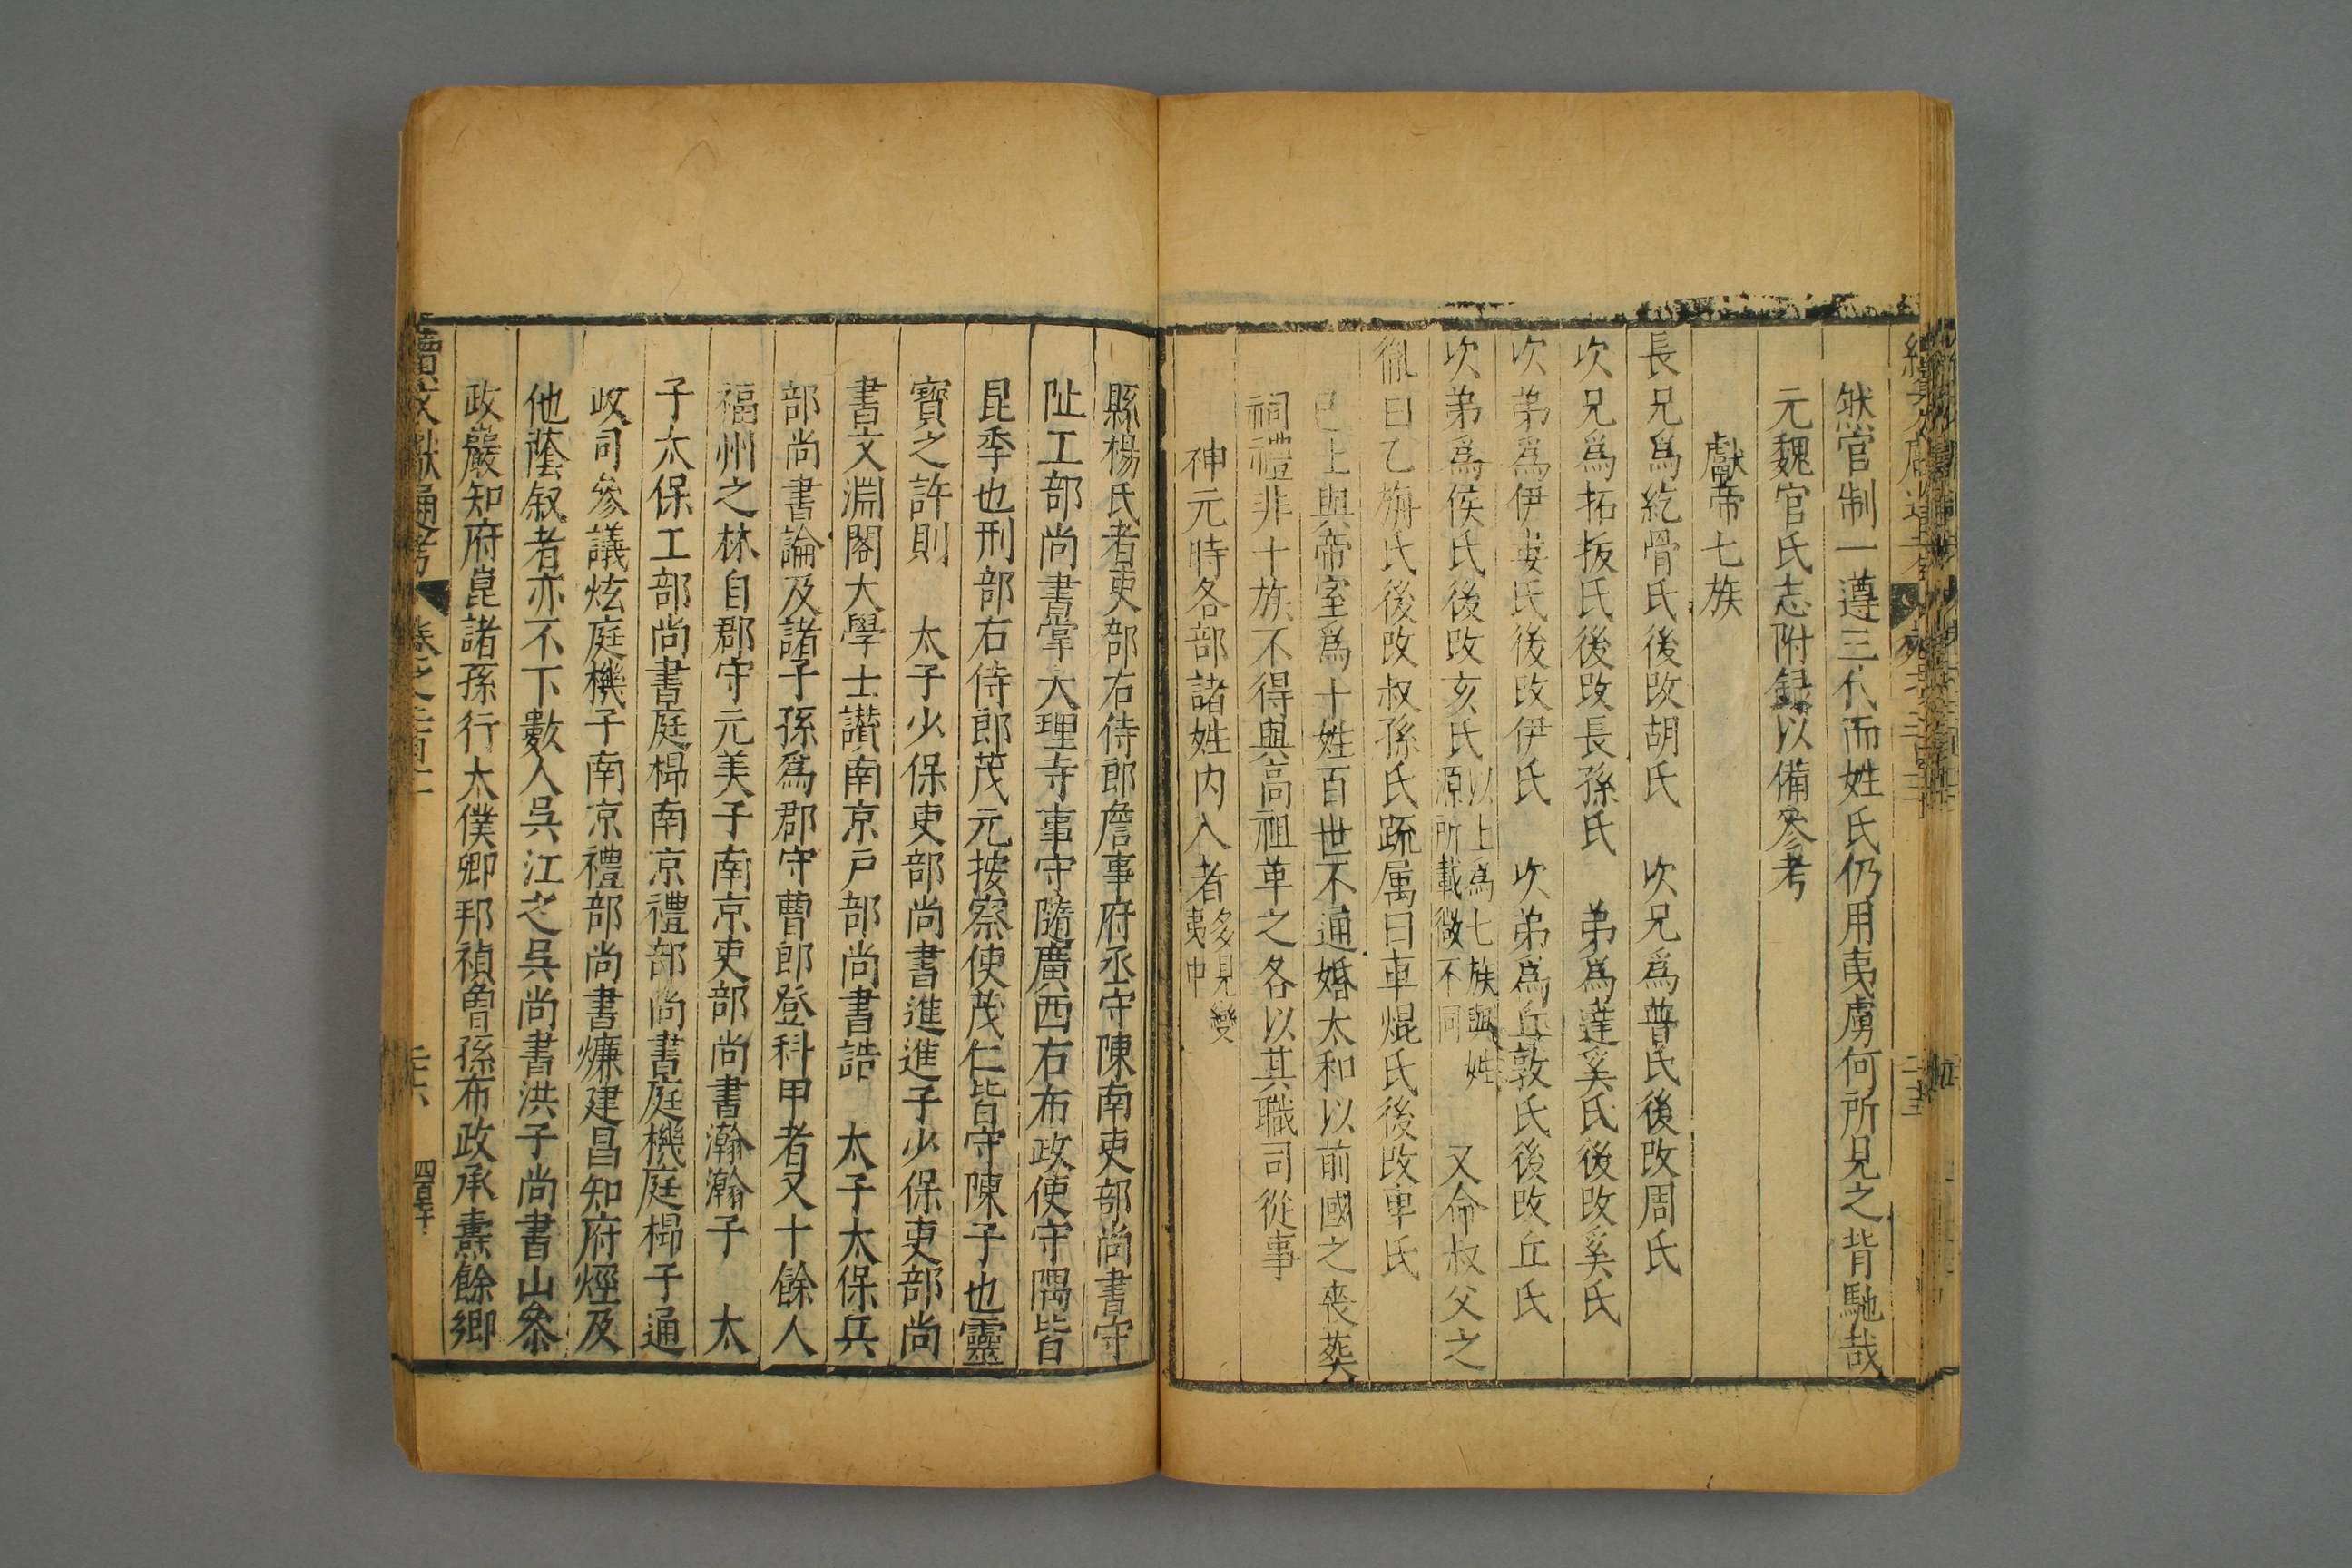 然官制一遵三代而姓氏仍用夷虜何所見之背馳哉
元魏官氏志附録以備參考
獻帝七族
長兄爲紇骨氏後改胡氏　次兄爲普氏後改周氏
次兄爲拓拔氏後改長孫氏　弟爲達奚氏後改奚氏
次弟爲伊婁氏後改伊氏　次弟爲丘敦氏後改丘氏
次弟爲侯氏後改亥氏以上爲七族與姓源所載微不同　又命叔父之
胤曰乙旃氏後改叔孫氏疏属曰車焜氏後改車氏
已上與帝室爲十姓百世不通婚太和以前國之喪葬
祠禮非十族不得與高祖革之各以其職司從事
神元時各部諸姓内入者多見變夷中
縣楊氏者吏部右侍郎詹事府丞守陳南吏部尚書守
阯工部尚書掌大理寺事守隨廣西右布政使守隅皆
昆季也刑部右侍郎茂元按察使茂仁皆守陳子也靈
寶之許則　太子少保吏部尚書進進子少保吏部尚
書文淵閣大學士讃南京戸部尚書誥　太子太保兵
部尚書論及諸子孫爲郡守曹郎登科甲者又十餘人
福州之林自郡守元美子南京吏部尚書瀚瀚子　太
子太保工部尚書庭㭿南京禮部尚書庭機庭㭿子通
政司參議炫庭機子南京禮部尚書㷰建昌知府烴及
他蔭叙者亦不下數人吳江之吳尚書洪子尚書山參
政巖知府崑諸孫行太僕卿邦禎曾孫布政承燾餘鄉
續文獻通考　卷之二百十　四百七十